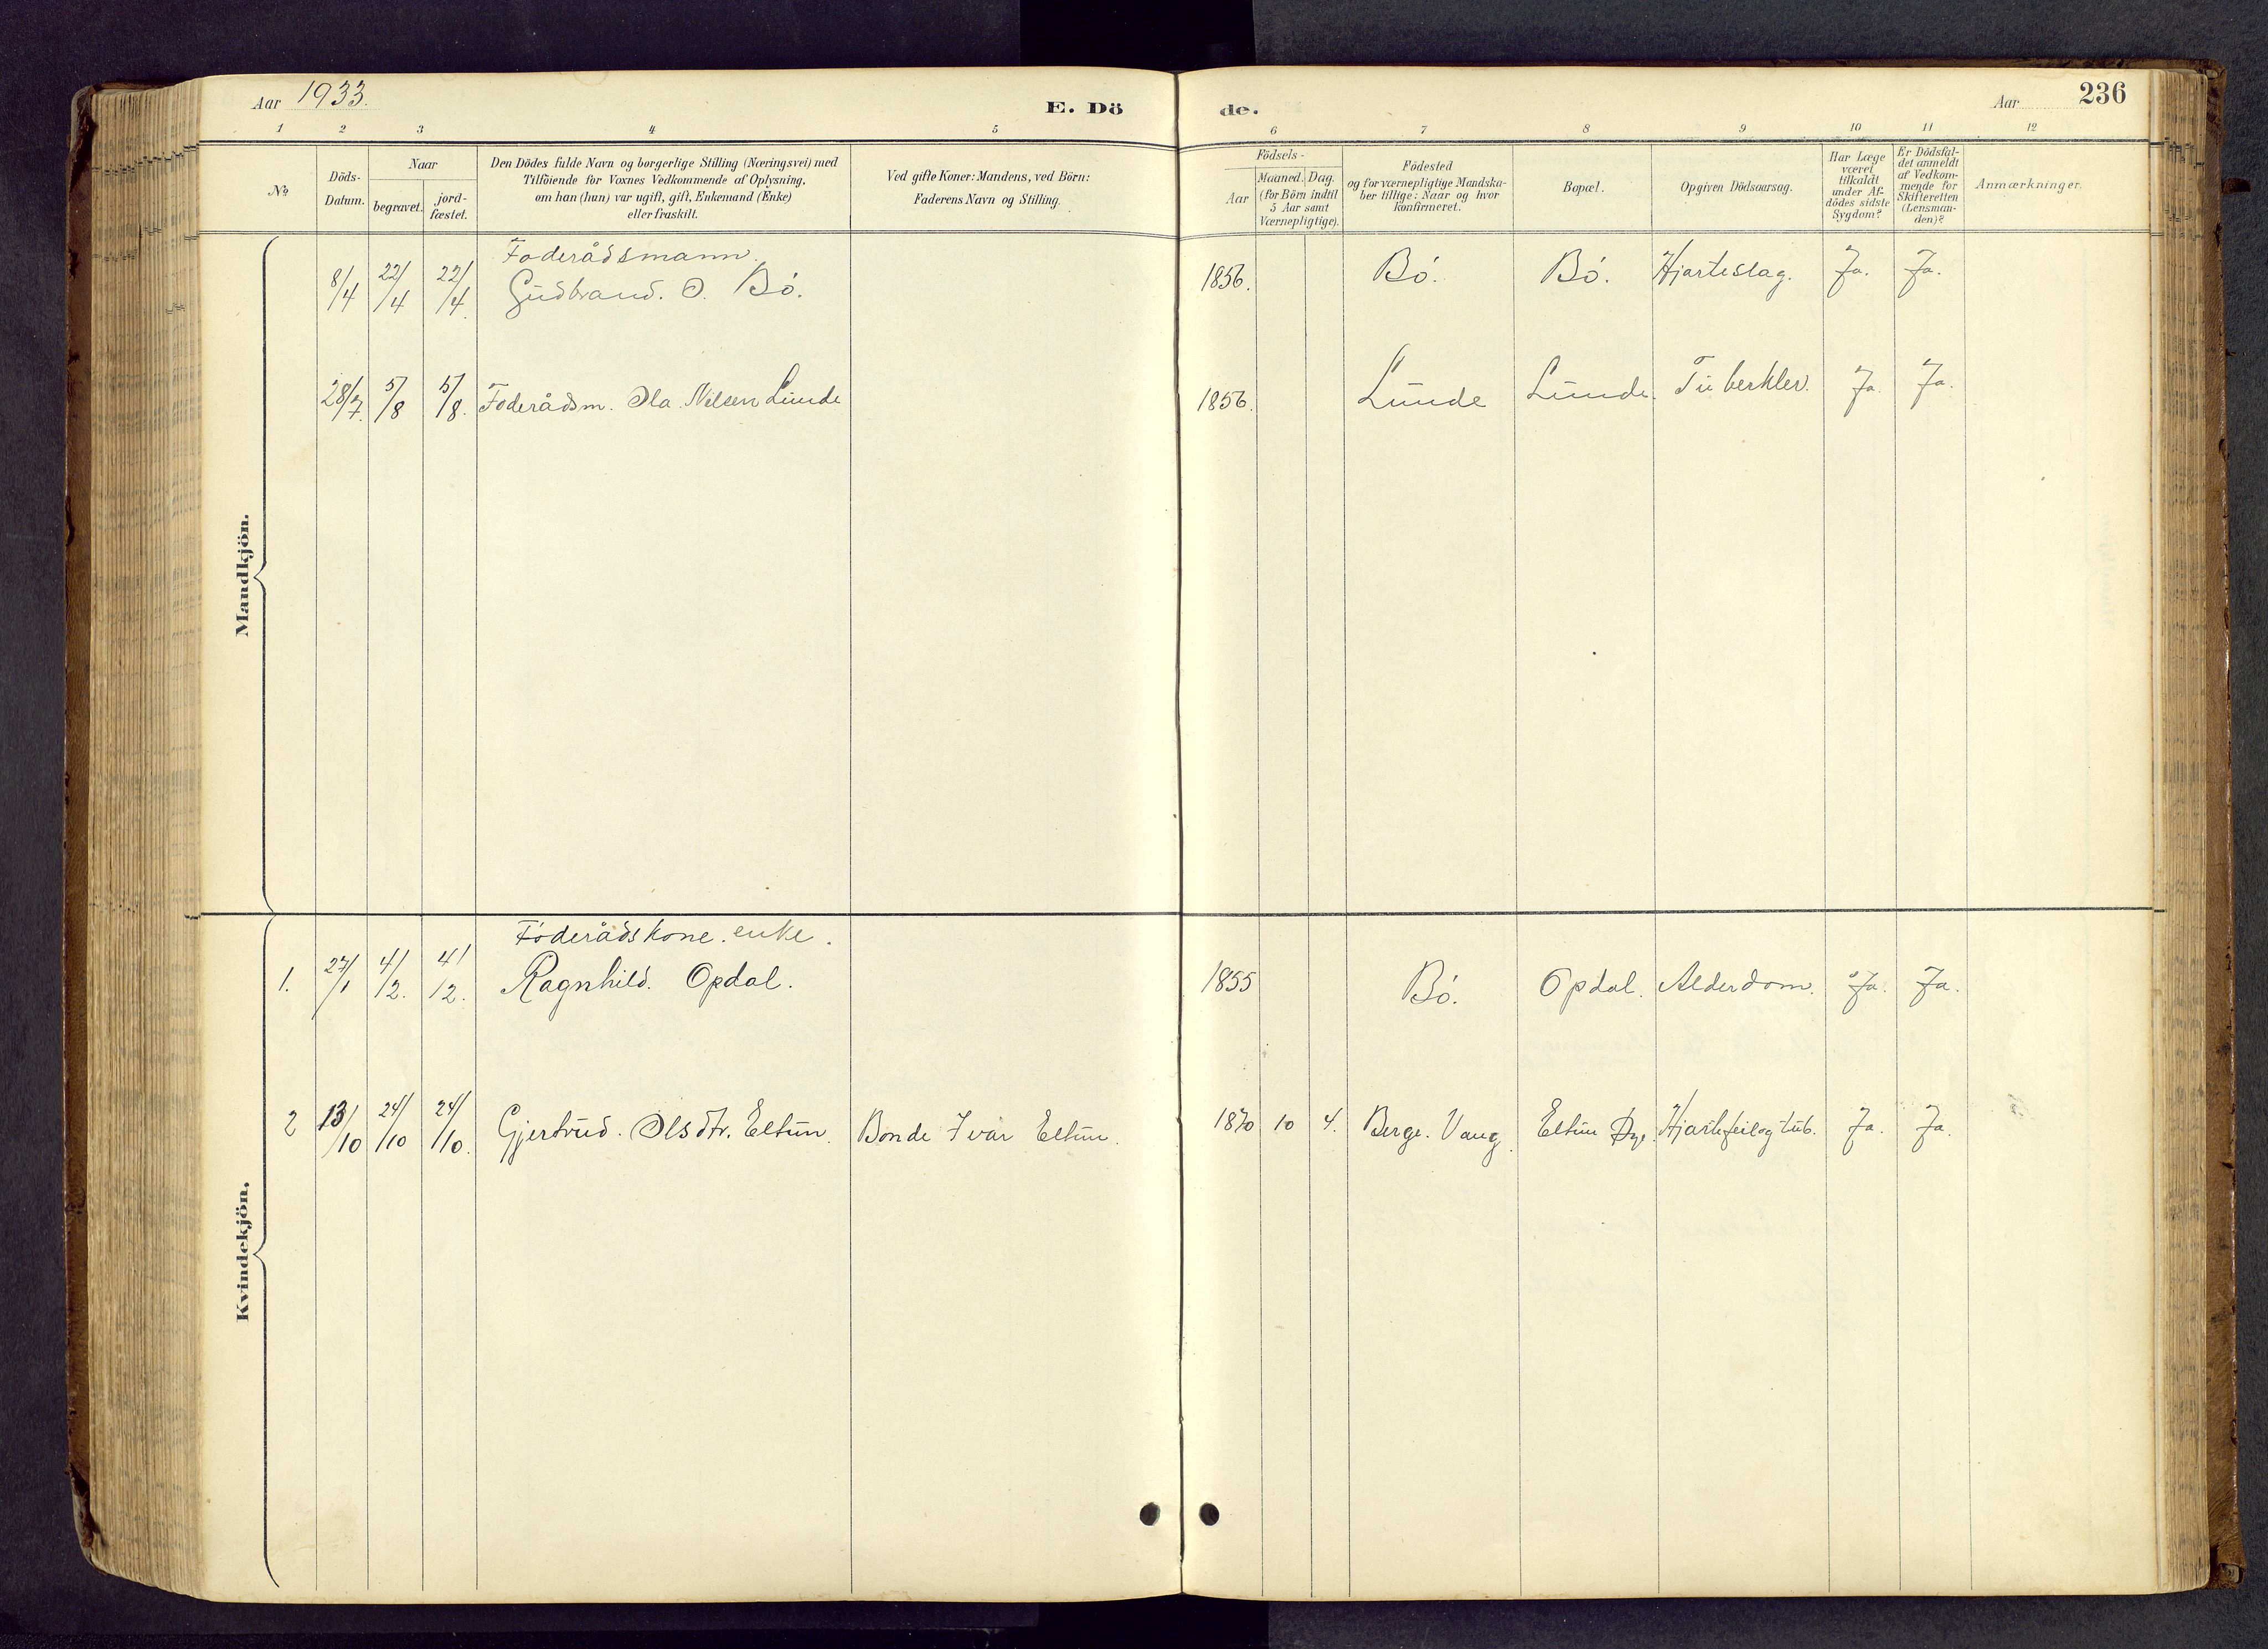 Aar 1933. E. Dö de. Aar 236
1 2 3 4 5 6 7 8 9 10 11 12
№
Döds-
Datum.
Naar
begravet.
jord-
fæstet.
Den Dödes fulde Navn og borgerlige Stilling (Næringsvei) med
Tilföiende for Voxnes Vedkommende af Oplysning,
om han (hun) var ugift, gift, Enkemand (Enke)
eller fraskilt.
Ved gifte Koner: Mandens, ved Börn:
Faderens Navn og Stilling.
Födsels-
Aar
Maaned. Dag.
(for Börn indtil
5 Aar samt
Værnepligtige).
Födested
og for værnepligtige Mandska-
ber tillige: Naar og hvor
konfirmeret.
Bopæl.
Opgiven Dödsaarsag.
Har Læge
været
tilkaldt
under Af-
dödes sidste
Sygdom?
Er Dödsfal-
det anmeldt
af Vedkom-
mende for
Skifteretten
(Lensman-
den)?
Anmærkninger.
Mandkjön.
Foderådsmann.
8/4 22/4 22/4. Gudbrand. O. Bó. 1856. Bó. Bó. Hjarteslag. Ja. Ja.
28/7. 5/8 5/8. Foderådsm. Ola Nilsen Lunde 1856. Lunde Lunde. Tuberkler. Ja. Ja.
Kvindekjön.
Foderådskone. enke.
1. 27/1 4/2. 4/2. Ragnhild. Opdal. 1855 Bó. Opdal. Alderdom. Ja. Ja.
2 13/10 24/10 24/10. Gjertrud. Olsdtr. Eltun. Bonde Ivar Eltun. 1870 10 4. Berge. Vang. Eltun Hjartefeil og tub. Ja. Ja.